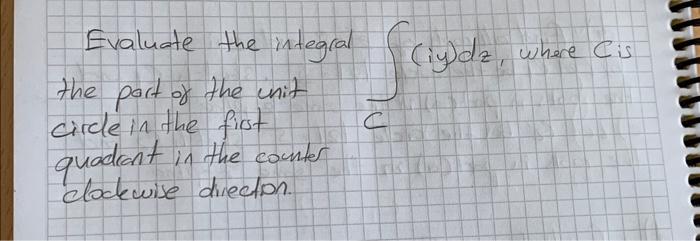 Evaluate the integral ∫ (iy)dz, where C is
the part of the unit
circle in the first C
quadant in the counter
clockwise direction.